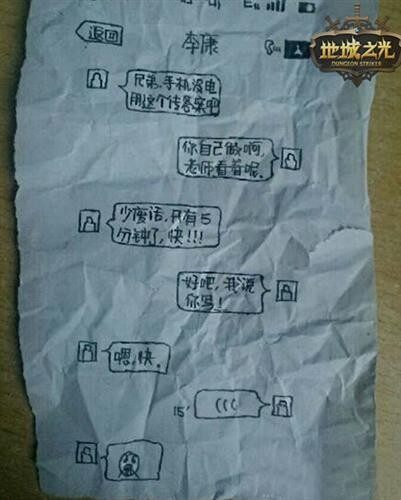 E
地城之光
DUNGEON STRIKER
返回
李康
兄弟,手机没电
用这个传答案吧
你自己做啊,
老师看着呢.
少废话,只有5
分钟了,快!!!
好吧,我说
你写!
嗯,快.
15" (((